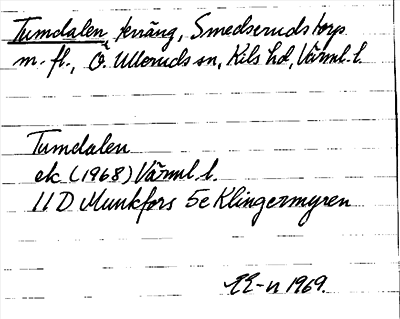 Tumdalen, terräng, Smedseruds torp
m. fl., Ö. Ulleruds sn, Kils hd, Värml. l.
Tumdalen
ek (1968) Värml. l.
11 D Munkfors 5e Klingermyren
EE-n 1969.